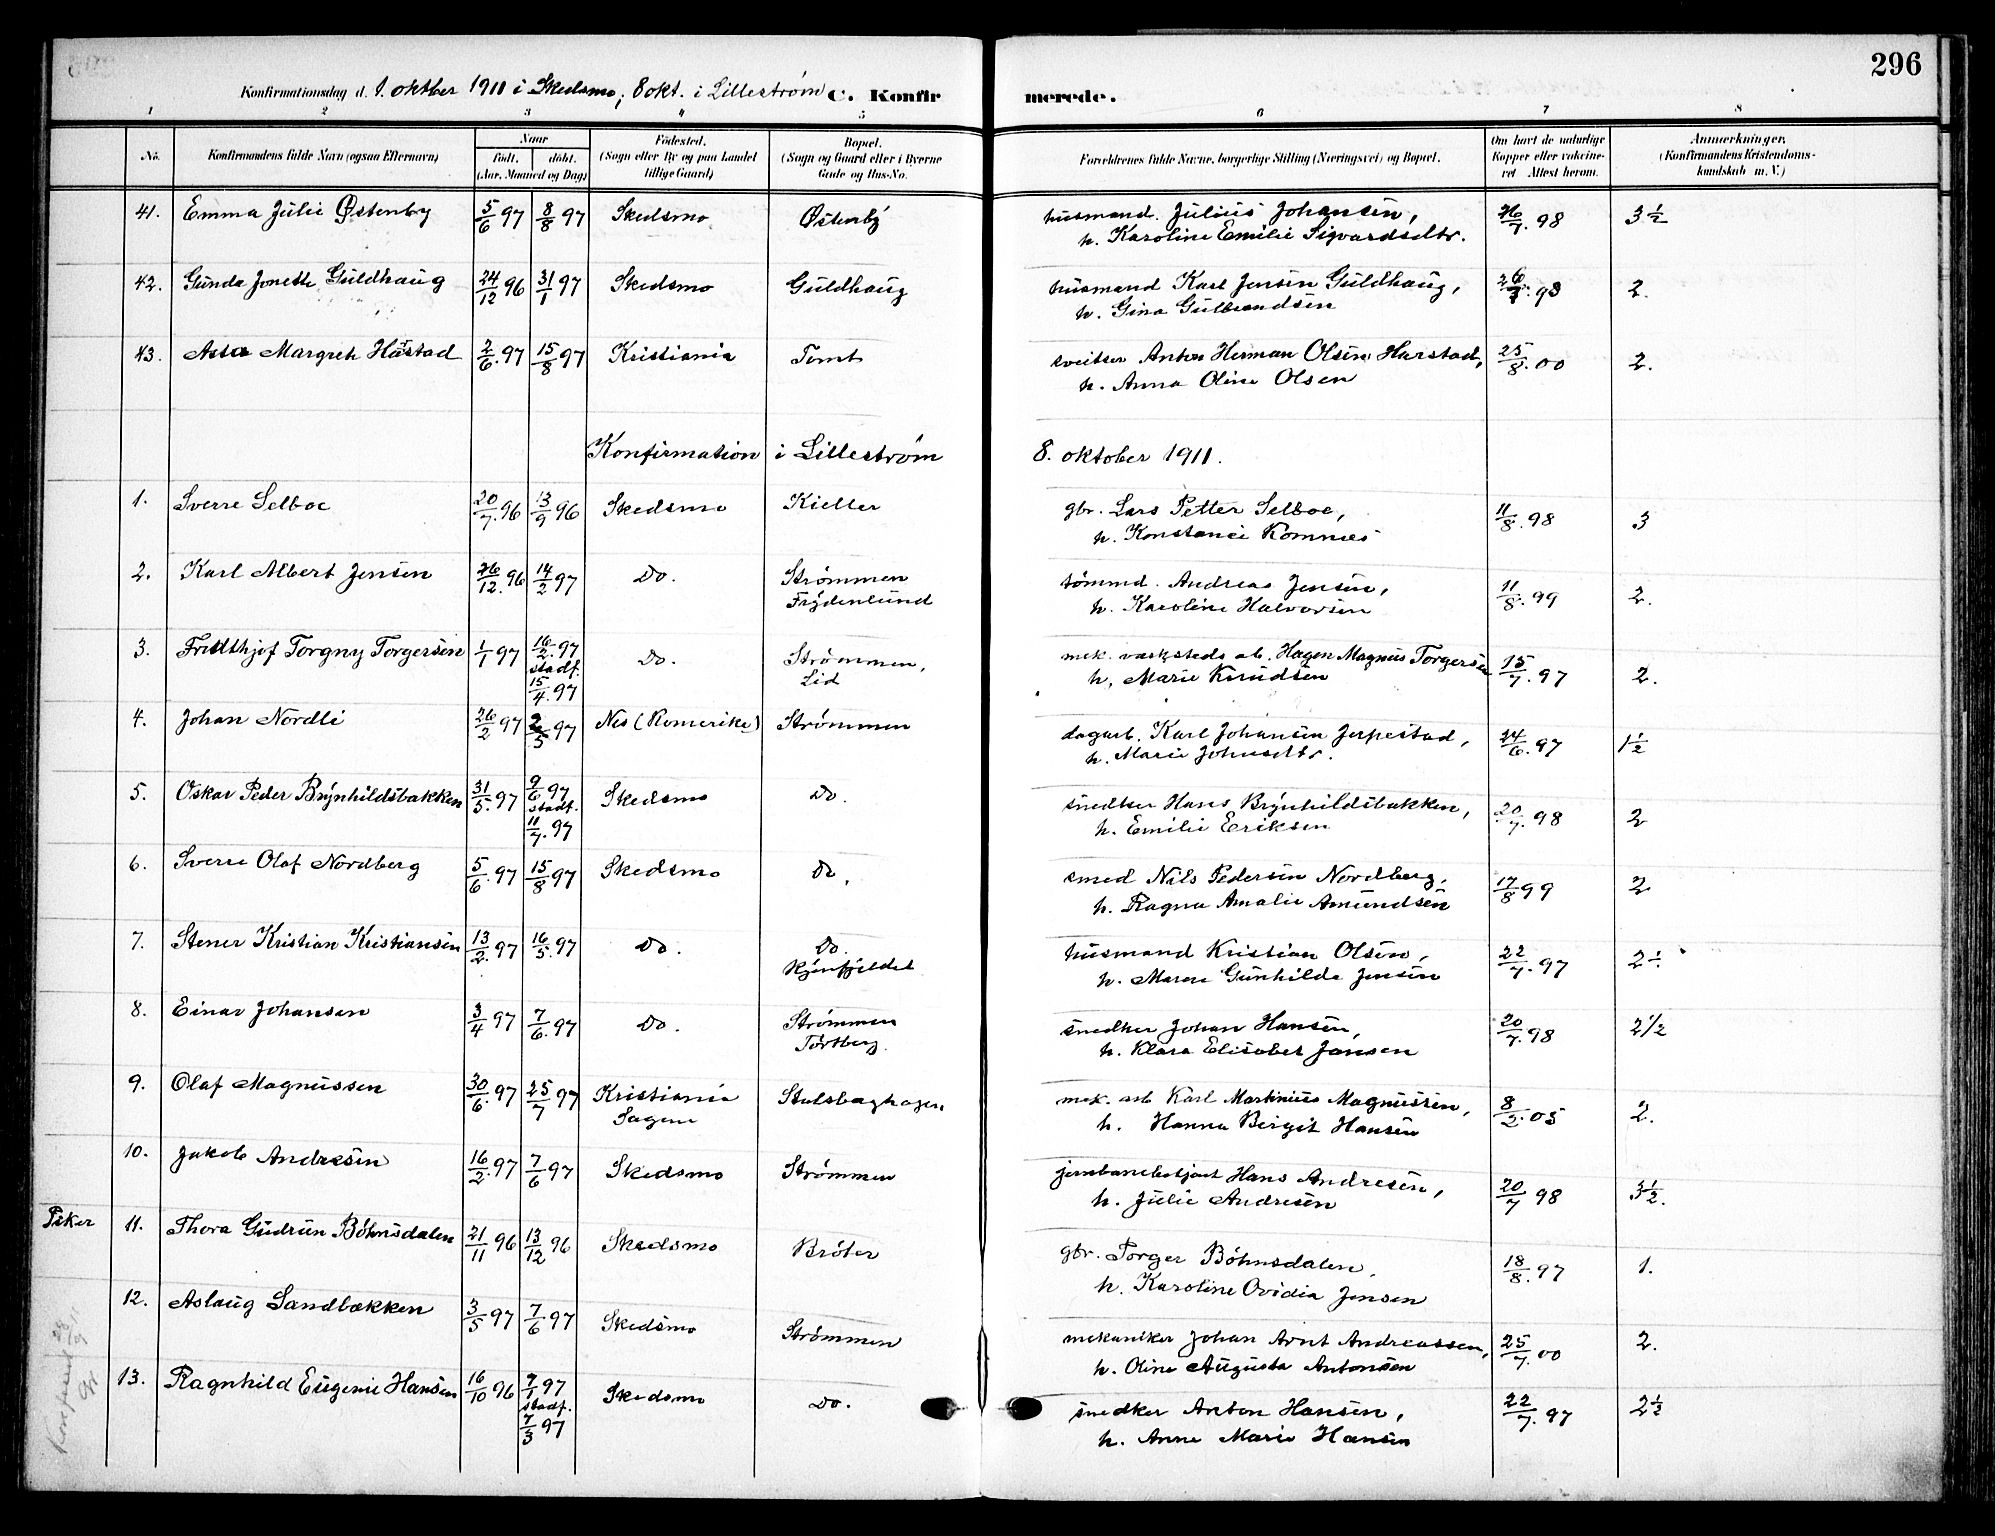 296
Konfirmationsdag d. 1. oktber 1911 i Skedsmo, 8 okt. i Lillestrøm C. Konfir merede.
1 2 3 4 5 6 7 8
No. Konfirmandens fulde Navn (ogsaa Efternavn) Naar født. døbt. (Aar, Maaned og Dag) Fødested. (Sogn eller By og paa Landet tillige Gaard) Bopæl. (Sogn og Gaard eller i Byerne Gade og Hus-No. Forældrenes fulde Navne, borgerlige Stilling (Næringsvei) og Bopæl. Om havt de naturlige Kopper eller vakcineret. Attest herom. Anmærkninger. (Konfirmandens Kristendomskundskab m. V.)
41. Emma Julie Østenby 5/6 97 8/8 97 Skedsmo Østerby husmand. Julius Johansen, 26/7. 98 3 1/2
h. Karoline Emilie Sigvardsdtr.
42. Gunda Jonette Guldhaug 24/12 96 31/1 97 Skedsmo Guldhaug husmand Karl Jensen Guldhaug, 98 2.
h. Gina Gulbrandsen
43. Asta Margreth Harstad 2/6. 97 15/8 97 Kristiania Tomt sveitser Anton Herman Olsen Harstad, 25/8. 00 2.
h. Anna Oline Olsen
Konfirmation i Lillestrøm 8. oktober 1911.
1. Sverre Selboe 20/7. 96 13/9 96 Skedsmo Kieller gbr. Lars Petter Selboe, 11/8. 98 3
h. Konstance Romnes
2. Karl Albert Jensen 26/12. 96 14/2 97 Do. Strømmen tømmd. Andreas Jensen, 11/8. 99 2.
Frydenlund h. Karoline Halvorsen
3. Fridthjof Torgny Torgersen 1/1 97 16/2. 97 Do. Strømmen, mek. verksteds arb. Hagen Magnus Torgersen 15/7. 97 2.
stadf. 15/4. 97 Lid h. Marie Knudsen
4. Johan Nordli 26/2 97 2/5 97 Nes (Romerike) Strømmen dagarb. Karl Johansen Jerpestad, 24/6. 97 1 1/2
h. Marie Johnsdtr.
5. Oskar Peder Brynhildsbakken 31/5. 97 9/6 97 Skedsmo Do. snedker Hans Brynhildsbakken, 20/7. 98 2
stadf. 11/7. 97 h. Emilie Eriksen
6. Sverre Olaf Nordberg 5/6. 97 15/8 97 Skedsmo Do. smed Nils Pedersen Nordberg, 17/8 99 2
h. Ragna Amalie Amundsen
7. Stener Kristian Kristiansen 13/2. 97 16/5. 97 Do. Do. husmand Kristian Olsen, 22/7. 97 2
h. Maren Gunhilde Jensen
8. Einar Johansen 3/4 97 7/6. 97 Do. Strømmen snedker Johan Hansen, 20/7. 98 2 1/2
Tørtberg. h. Klara Elisabet Jansen
9. Olaf Magnussen 30/6. 97 25/7 97 Kristiania mek. arb Karl Martinius Magnussen, 8/2. 05 2.
Sagene h. Hanna Birgit Hansen
10. Jakob Andresen 16/2. 97 7/6 97 Skedsmo Strømmen Hans Andresen, 20/7 98 3 1/2.
h. Julie Andresen
Piker 11. Thora Gudrun Böhnsdalen 21/11 96 13/12 96 Skedsmo Bröter gbr. Torger Böhnsdalen, 18/8. 97 1.
h. Karoline Ovidia Jensen
12. Aslaug Sandbækken 3/5 97 7/6 97 Skedsmo Strømmen mekaniker Johan Arnt Andreassen, 25/7. 00 2.
h. Oline Augusta Antonsen
13. Ragnhild Eugenie Hansen 16/10 96 7/1 97 Skedsmo Do. snedker Anton Hansen, 22/7. 97 2 1/2
stadf. 7/3 97 h. Anne Marie Hansen